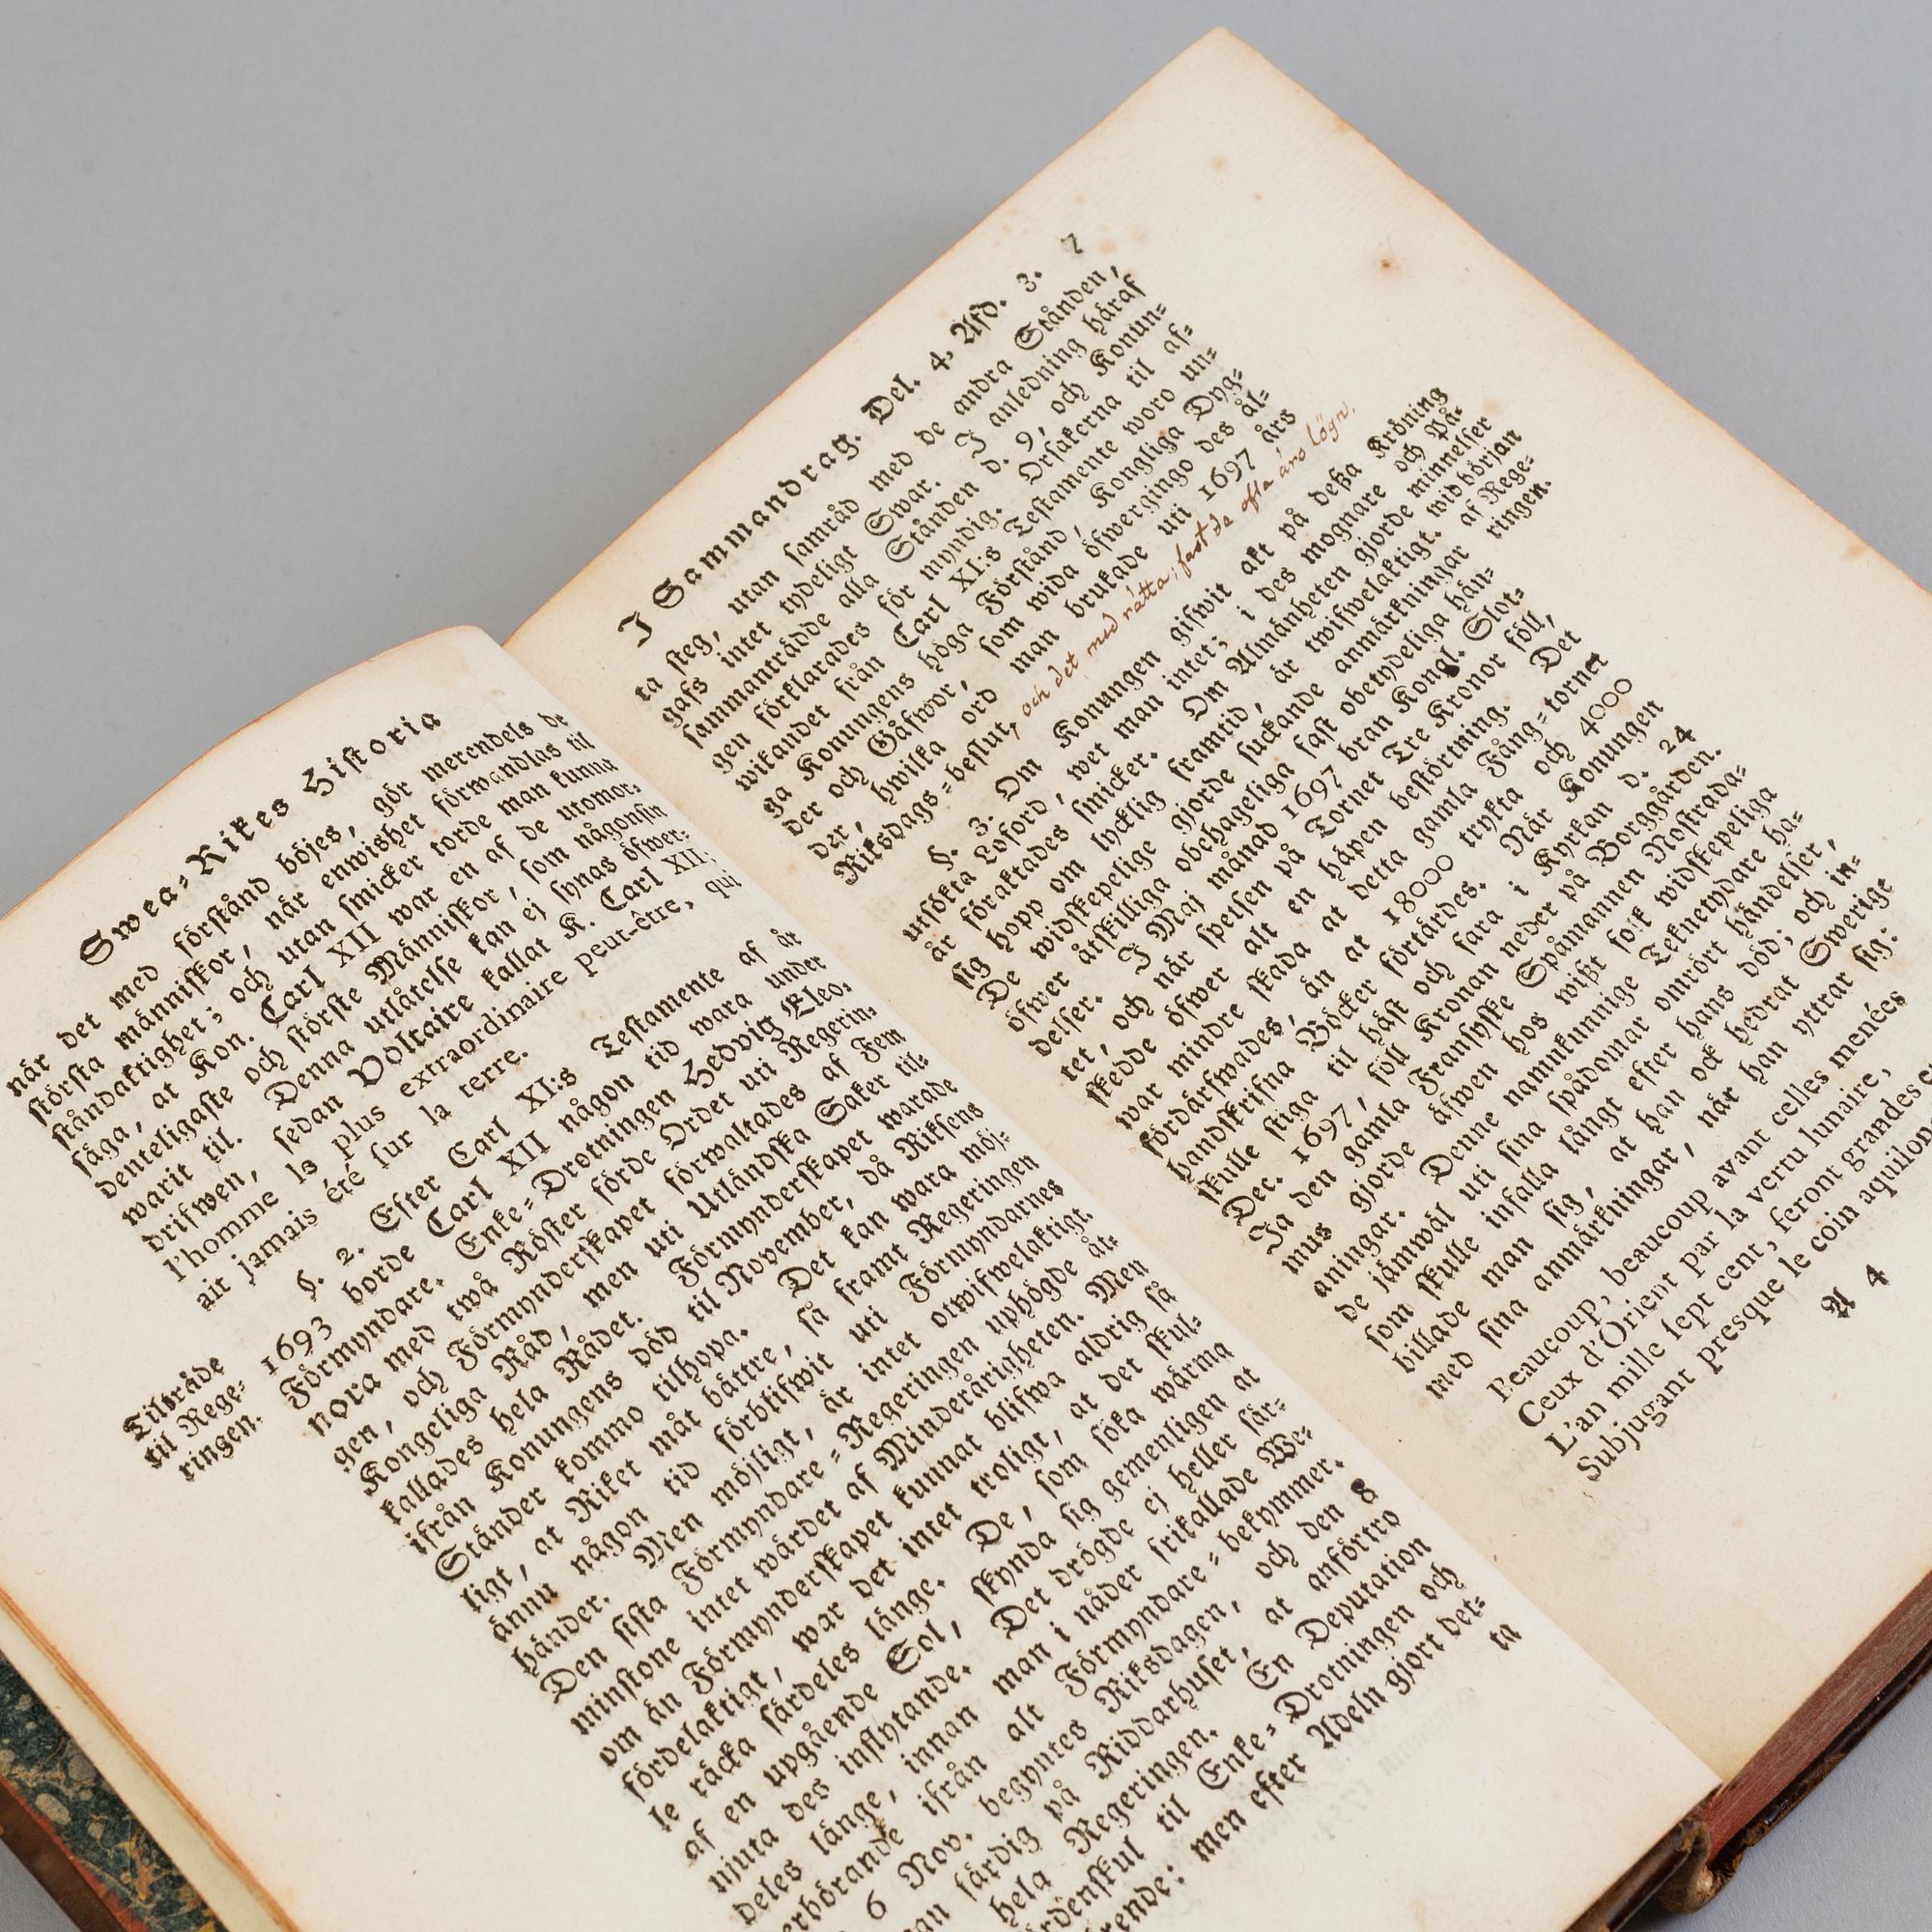 Swea-Rikes Historia
når det med förstånd böjes, gör merendels de
största människor, når enwishet förwandlas til
ståndaktighet; och utan smicker torde man kunna
såga, at Kon. Carl XII war en af de utomor-
denteligaste och störste Människor, som någonsin
warit til. Denna utlåtelse kan ej synas öfwer-
drifwen, sedan Voltaire kallat K. Carl XII:
l'homme le plus extraordinaire peut-être, qui
ait jamais été sur la terre.
§. 2. Efter Carl XI:s Testamente af år
1693 borde Carl XII någon tid wara under
Tiltråde
til Rege-
ringen.
Förmyndare. Enke-Drotningen Hedvig Eleo-
nora med twå Röster förde Ordet uti Regerin-
gen, och Förmynderskapet förwaltades af Fem
Kongeliga Råd, men uti Utländska Saker til-
kallades hela Rådet. Förmynderskapet warade
ifrån Konungens död til November, då Riksens
Stånder kommo tilhopa. Det kan wara möj-
ligt, at Riket måt båttre, så framt Regeringen
ånnu någon tid förblifwit uti Förmyndarnes
hånder. Men möjligt, år intet otwifwelaktigt.
Den sista Förmyndare-Regeringen uphögde åt-
minstone intet wårdet af Minderårigheten. Men
om ån Förmynderskapet kunnat blifwa aldrig så
fördelaktigt, war det intet troligt, at det skul-
le råcka sårdeles långe. De, som söka wårma
af en upgående Sol, skynda sig gemenligen at
njuta des inflytande. Det drögde ej heller sår-
deles långe, innan man i nåder frikallade We-
erbörande ifrån alt Förmyndare-bekymmer.
6 Nov. begyntes Riksdagen, och den 8
an fårdig på Riddarhuset, at anförtro
hela Regeringen. En Deputation
rdenskul til Enke-Drotningen och
rende: men efter Adeln gjort det-
ta
I Sammandrag. Del. 4, Afd. 3. 7
ta steg, utan samråd med de andra Stånden,
gafs intet tydeligt Swar. I anledning håraf
sammantrådde alla Stånden d. 9, och Konun-
gen förklarades för myndig. Orsakerna til af-
wikandet från Carl XI:s Testamente woro un-
ga Konungens höga Förstånd, Kongliga Dyg-
der och Gåfwor, som wida öfwergingo des ål-
der, hwilka ord man brukade uti 1697 års
Riksdags-beslut, och det med rätta, fast de ofta äro lögn.
§. 3. Om Konungen gifwit akt på deßa
unsökta Loford, wet man intet; i des mognare
år föraktades smicker. Om Almånheten gjorde
sig hopp om lycklig framtid, år twifwelaktigt.
De widskepelige gjorde suckande anmårkningar
öfwer åtskilliga obehageliga fast obetydeliga hån-
delser. I Maj månad 1697 bran Kongl. Slot-
Kröning
och På-
minnelser
wid början
af Rege-
ringen.
tet, och når spetsen på Tornet Tre Kronor föll,
skedde öfwer alt en håpen bestörtning. Det
war mindre skada at detta gamla Fång-tornet
fördårfwades, ån at 18000 trykta och 4000
handskrifna Böcker förtårdes. Når Konungen
skulle stiga til håst och fara i Kyrkan d. 24
Dec. 1697, föll Kronan neder på Borggården.
Ja den gamla Fransyske Spåmannen Nostrada-
mus gjorde åfwen hos wißt folk widskepeliga
aningar. Denne namnkunnige Teknetydare ha-
de jåmwål uti sina spådomar omrört håndelser,
som skulle infalla långt efter hans död; och in-
billade man sig, at han ock hedrat Swerige
med sina anmårkningar, når han yttrar sig:
Beaucoup, beaucoup avant celles menées
Ceux d'Orient par la vertu lunaire,
L'an mille sept cent, feront grandes
Subjugant presque le coin aquilon
A 4